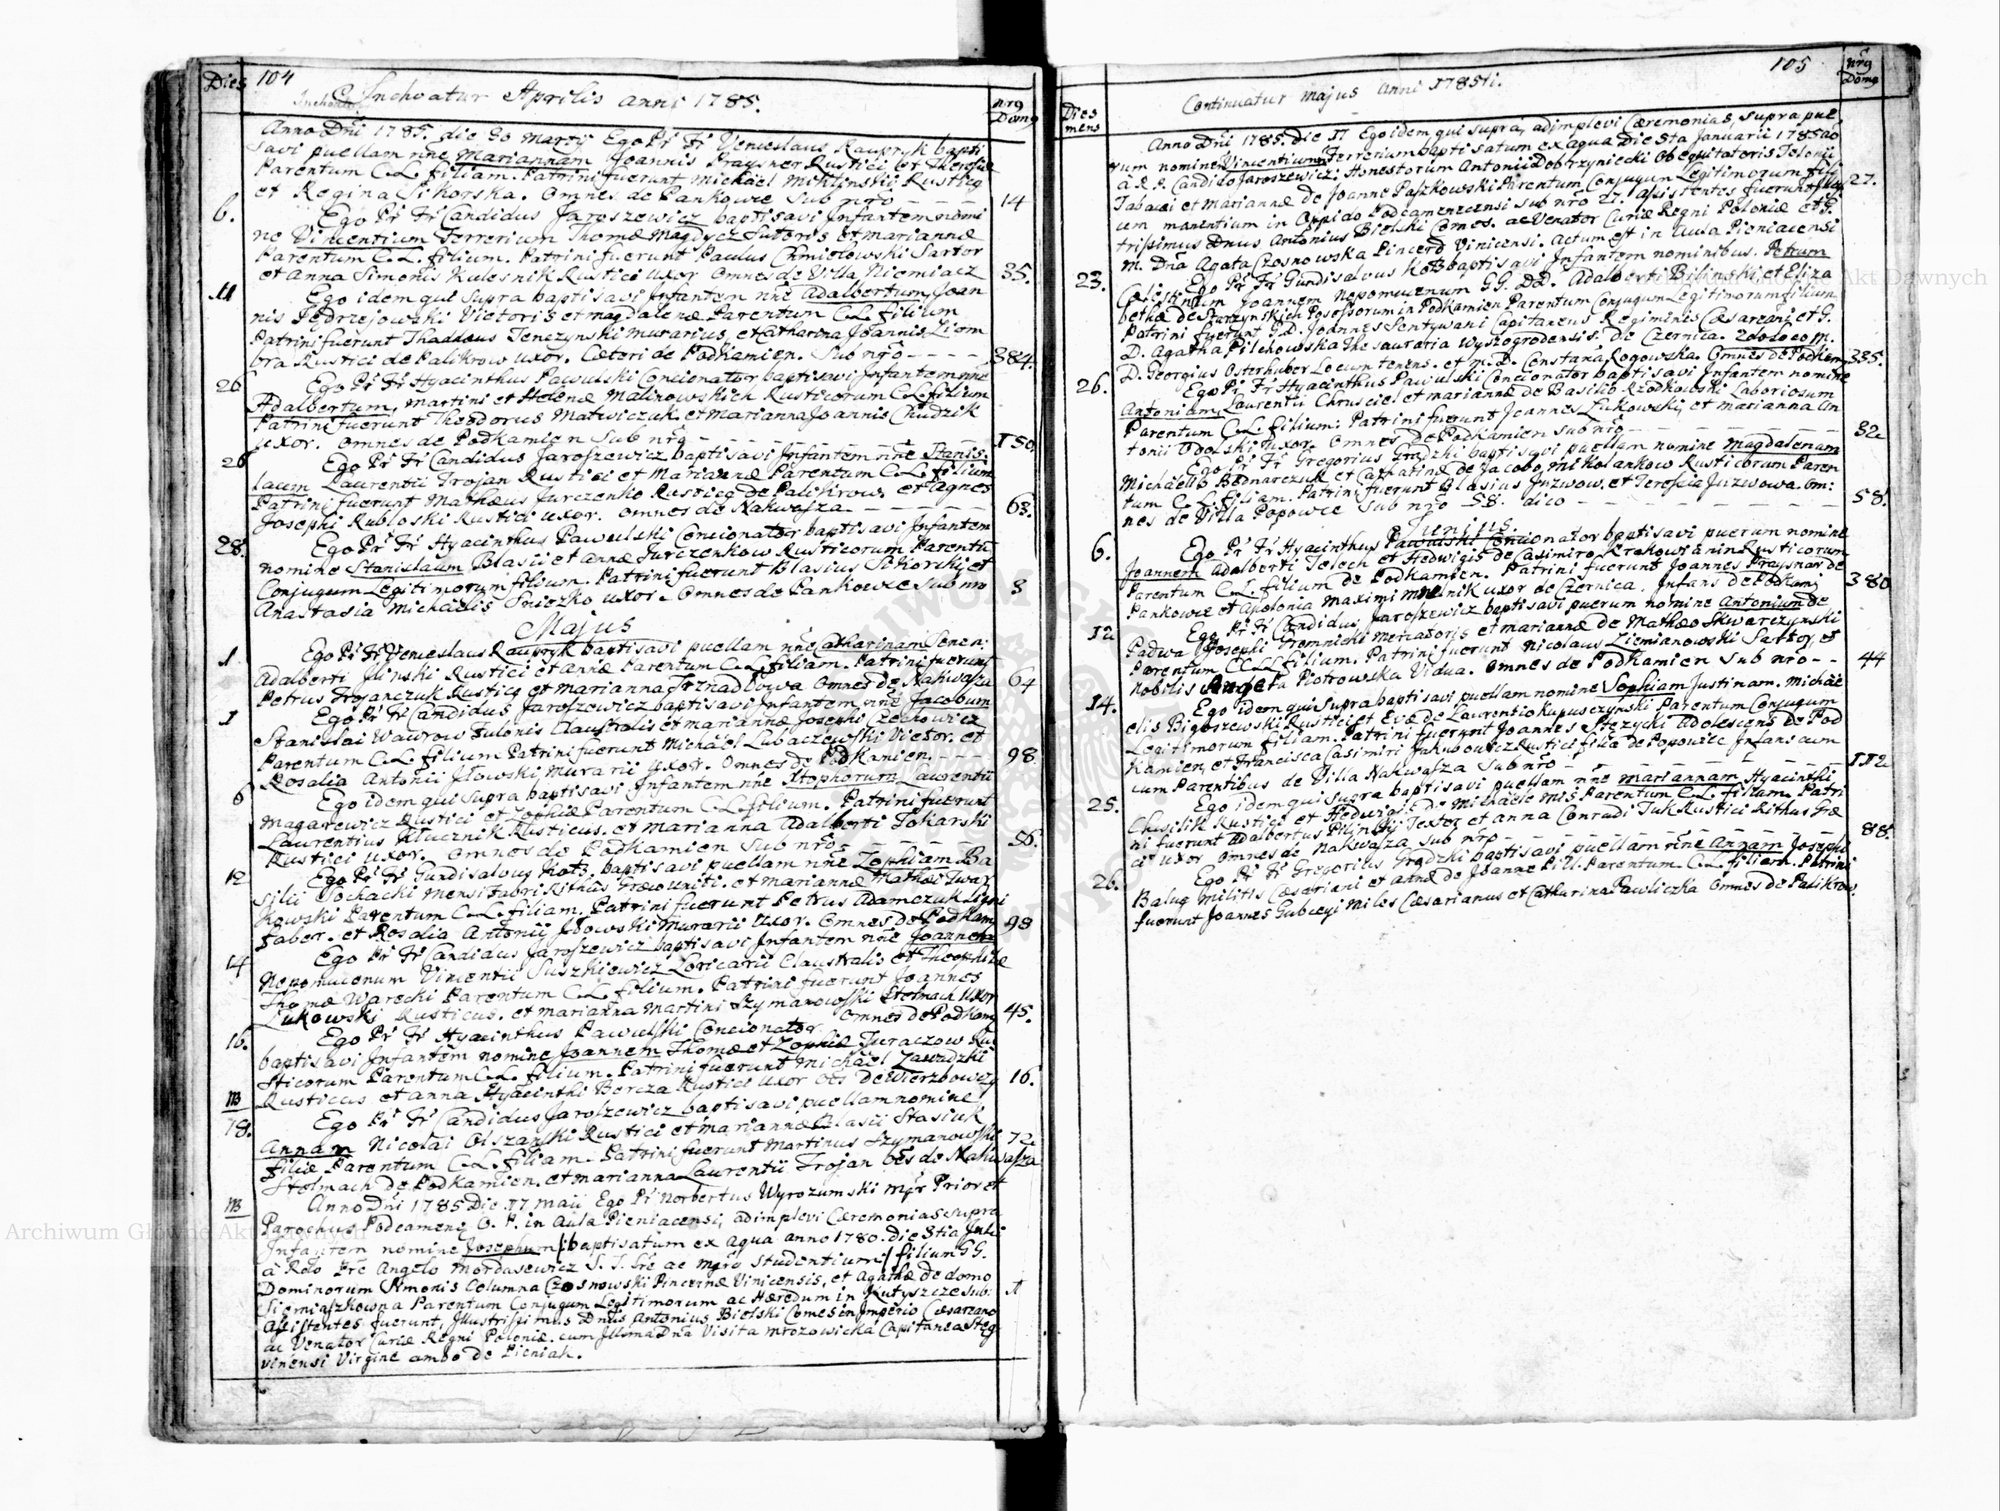 Dies 104
Inchoatur Aprilis anni 1785.
nrg Domg
Anno Dni 1785. die 30 Martij Ego Pr Fr Venceslaus Kaupryk bapti
savi puellam nne Mariannam Joannis Praysner Rustici et Theresiæ
Parentum C.L. filiam. Patrini fuerunt Michael Rusticg
et Regina Sikorska. Omnes de Pankowce sub nro 14
6. Ego Pr Fr Candidus Jaroszewicz baptisavi Infantem nomi
ne Vincentium Ferrerium Thomæ Magdycz Sutoris et Mariannæ
Parentum C.L. filium. Patrini fuerunt Paulus Chmielowski Sartor
et Anna Simonis Kulesnik Rustici uxor Omnes de Villa Niemiacz 35.
11 Ego idem qui supra baptisavi Infantem nne Adalbertum Joan
nis Jędrzejowski Vietoris et Magdalenæ Parentum C.L. filium
Patrini fuerunt Thaddæus Tenczynski murarius, et Catharina Joannis Ziom
bra Rustici de Palikrow uxor. Cæteri de Podkamien. Sub nro - - - - 384.
26 Ego Pr Fr Hyacinthus Pawulski Concionator baptisavi Infantem nne
Adalbertum, Martini et Helenæ Malinowskich Rusticorum C.L. filium
Patrini fuerunt Theodorus Matwiczuk et Marianna Joannis Chudzik
uxor. Omnes de Podkamien sub nro - - - - - 150.
26 Ego Pr Fr Candidus Jaroszewicz baptisavi Infantem nne Stanis:
laum Laurentii Trojan Rustici et Mariannæ Parentum C.L. filium
Patrini fuerunt Mathæus Jurczenko Rusticg de Palikrow, et Agnes
Josephi Kubloski Rustici uxor. Omnes de Nakwasza - - - - - 63.
28. Ego Pr Fr Hyacinthus Pawulski Concionator baptisavi Infantem
nomine Stanislaum Blasii et Annæ Jurczenkow Rusticorum Parentu
Conjugum Legitimorum filium. Patrini fuerunt Blasius Sikorski et
Anastasia Michaelis Sniezko uxor. Omnes de Pankowce sub nro 3
Majus
1. Ego Pr Fr Venceslaus Kaupryk baptisavi puellam nne Catharinam
Adalberti Ilinski Rustici et Annæ Parentum C.L. filiam. Patrini fuerunt
Petrus Trojanczuk Rusticg et Marianna Omnes de Nakwasza 64
1 Ego Pr Fr Candidus Jaroszewicz baptisavi Infantem nne Jacobum
Stanislai Wawrow Fulonis Claustralis et Mariannæ Josephi Czechowicz
Parentum C.L. filium Patrini fuerunt Michael Lubaczewski Vietor. et
Rosalia Antonii Ilowski Murarii uxor. Omnes de Podkamien. - - - 98.
6 Ego idem qui supra baptisavi Infantem nne Xtophorum Laurentii
Magarewicz Rustici et Zophiæ Parentum C.L. filium. Patrini fuerunt
Laurentius Klucznik Rusticus. et Marianna Adalberti Tokarski
Rustici uxor. Omnes de Podkamien sub nro - - - - 56.
12 Ego Pr Fr Gundisalvus Kotz baptisavi puellam nne Zophiam Ba
silii Sochacki Mensifabri Rithus Græcouniti. et Mariannæ Mathæi Zwar
kowski Parentum C.L. filiam. Patrini fuerunt Petrus Adamczuk Ligni
faber. et Rosalia Antonii Ilowski Murarii uxor. Omnes de Podkam 98
14 Ego Pr Fr Candidus Jaroszewicz baptisavi Infantem nne Joannem
Nepomucenum Vincentii Suszkiewicz Loricarii Claustralis et Theophilæ
Thomæ Warecki Parentum C.L. filium. Patrini fuerunt Joannes
Lukowski Rusticus. et Marianna Martini Szymanowski Stelmach uxor
Omnes de Podkam 45.
16. Ego Pr Fr Hyacinthus Pawulski Concionator
baptisavi Infantem nomine Joannem Thomæ et Zophiæ Juraczow Ru
sticorum Parentum C.L. filium. Patrini fuerunt Michael Zawadzki
Rusticus et Anna Hyacinthi Bereza Rustici uxor Oes de Wierzbowcz 16.
NB
18. Ego Pr Fr Candidus Jaroszewicz baptisavi puellam nomine
Annam Nicolai Olszanski Rustici et Mariannæ Blasii Stasiuk
filiæ Parentum C.L. filiam. Patrini fuerunt Martinus Szymanowski 72
Stelmach de Podkamien. et Marianna Laurentii Trojan Oes de Nakwasza
NB Anno Dni 1785 Die 17 Maii Ego Pr Norbertus Wyrozumski Mgr Prior et
Parochus Podcamenen O. P. in Aula Pieniacensi, adimplevi Cæremonias supra
Infantem nomine Josephum/: baptisatum ex Aqua anno 1780. die 3tia Julii
à Rdo Pre Angelo Mordasewicz S. T. Lre ac Mgro Studentium/ filium GG.
Dominorum Simonis Columna Czosnowski Pincernæ Vinicensis, et Agathæ de domo
Siemiaszkowna Parentum Conjugum Legitimorum ac Hæredum in Kutyszcze sub: 1
Assistentes fuerunt, Illustrissimus Dnus Antonius Bielski Comes in Imperio Cæsareano
ac Venator Curiæ Regni Poloniæ. cum Illma Dna Visita Mrozowicka Capitanea Steg
vinensi Virgine ambo de Pieniak.
105
Dies mens
Continuatur Majus Anni 1785ti.
nrg Domg
Anno Dni 1785. Die 17 Ego idem, qui supra, adimplevi Cæremonias, supra pue
rum nomine Vincentium Ferrerium baptisatum ex aqua Die 5ta Januarii 1785 ao
à R. P. Candido Jaroszewicz: Honestorum Antonii Dobrzyniecki Obequitatoris Telonii
Tabaci et Mariannæ de Joanne Paszkowski Parentum Conjugum Legitimorum fili 27.
um manentium in Oppido Podcamenecensi sub nro 27. Assistentes fuerunt Illus
trissimus Dnus Antonius Bielski Comes. ac Venator Curiæ Regni Poloniæ et G.
M. Dna Agata Czosnowska Pincerd Vinicensi. Actum est in Aula Pieniacensi
23. Ego Pr Fr Gundisalvus Kotz baptisavi Infantem nominibus. Petrum
Cælestinum Joannem Nepomucenum GG. DD. Adalberti Bilinski et Eliza
bethæ de Starzynskich Posessorum in Podkamien Parentum Conjugum Legitimorum filium
Patrini fuerunt G.D. Joannes Sentywani Capitaneus Regiminis Cæsareani et G.
D. Agatha Pilchowska Thesauraria Wyszogrodensis. de Czernica. 2do loco M.
D. Georgius Osterhuber Locumtenens. et M. D. Constana Rogowska. Omnes de Podkam 335.
26. Ego Pr Fr Hyacinthus Pawulski Concionator baptisavi Infantem nomine
Antonium, Laurentii Chrusciel et Mariannæ de Basilio Rzodkowski Laboriosum
Parentum C.L. filium: Patrini fuerunt Joannes Lukowski, et Marianna An
tonii Opolski uxor. Omnes de Podkamien sub nro - - - - - - 32
Ego Pr Fr Gregorius Grądzki baptisavi puellam nomine Magdalenam
Michaelis Bednarczuk et Catharinæ de Jacobo Mikolankow Rusticorum Paren
tum C.L. filiam. Patrini fuerunt Blasius Juzwow, et Teressia Juzwowa. Om:
nes de Villa Popowce sub nro 58. dico - - - - - 58.
Junius.
6. Ego Pr Fr Hyacinthus Pawulski Concionator baptisavi puerum nomine
Joannem Adalberti Teloch et Hedwigis de Casimiro Krakowianin Rusticorum
Parentum C.L. filium de Podkamien. Patrini fuerunt Joannes Praysnar de
Pankowce et Apolonia Maximi Melnik uxor de Czernica. Infans de Podkami 380
12 Ego Pr Fr Candidus Jaroszewicz baptisavi puerum nomine Antonium de
Padwa Josephi Gremnicki Mercatoris et Mariannæ de Mathæo Skwarczynski
Parentum CCLL filium. Patrini fuerunt Nicolaus Ziemianowski Sartor, et
Nobilis Angela Piotrowska Vidua. Omnes de Podkamien sub nro - - 44
14. Ego idem qui supra baptisavi puellam nomine Sophiam Justinam. Michae
elis Bigoszewski Rustici et Evæ de Laurentio Kupusczynski Parentum Conjugum
Legitimorum filiam. Patrini fuerunt Joannes Stęzycki Adolescens de Pod
kamien, et Francisca Casimiri Jakubowicz Rustici filia de Popowce Infans cum
cum Parentibus de Villa Nakwasza sub nro - - - - - 112
25. Ego idem qui supra baptisavi puellam nne Mariannam Hyacinthi
Chwilik Rustici et Hedwigis de Michaele Mis Parentum C.L. filiam. Patri
ni fuerunt Adalbertus Pilinski Textor et Anna Conradi Tuk Rustici Rithus Græ
ci uxor Omnes de Nakwasza sub nro - - - - 88.
26. Ego Pr Fr Gregorius Grądzki baptisavi puellam nne Annam Josephi
Balug Militis Cæsariani et Annæ de Joanne Parentum C.L. filiam. Patrini
fuerunt Joannes Gubicyi Miles Cæsarianus et Catharina Pawliczka Omnes de Palikrow.
Archiwum Główne Akt Dawnych
Archiwum Główne Akt Dawnych